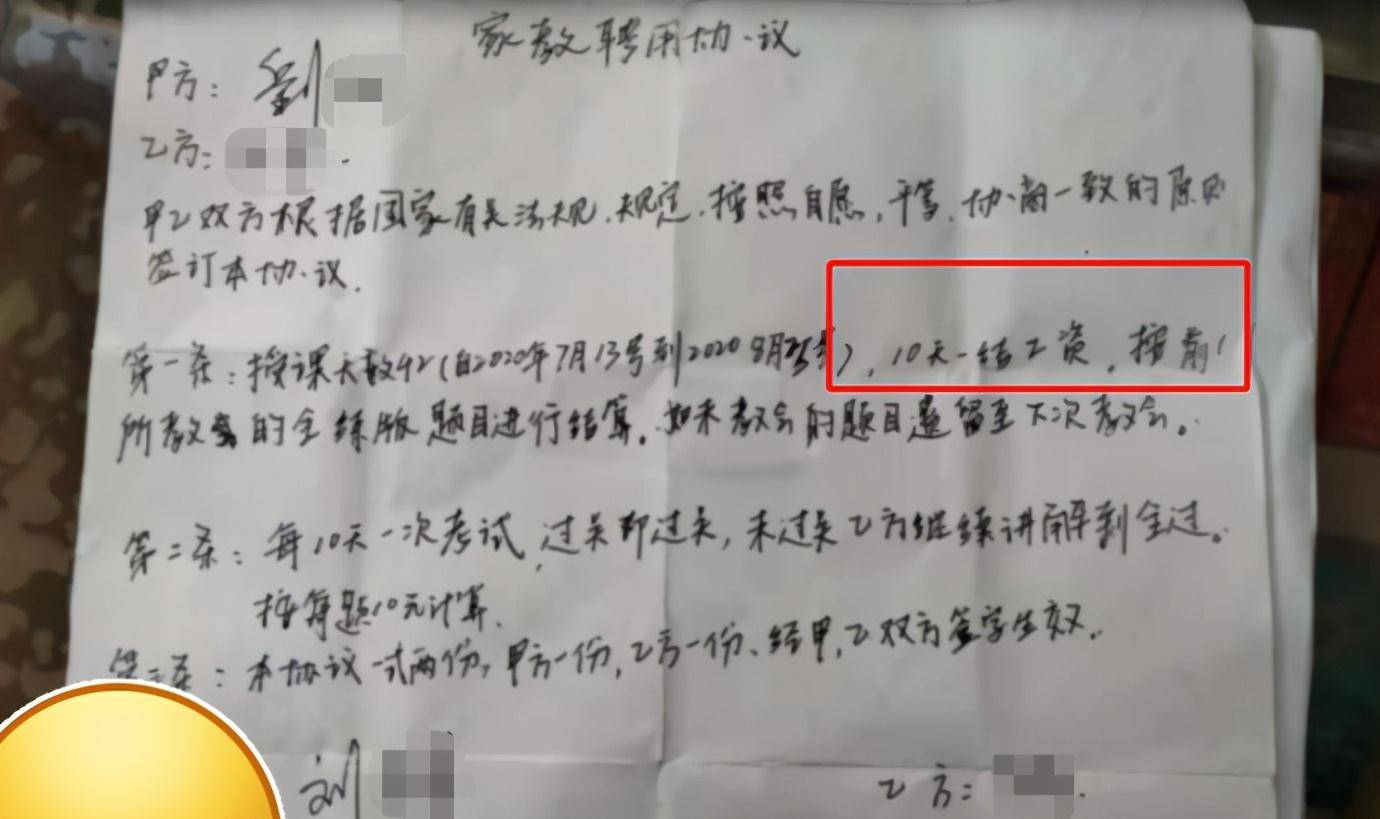 家教聘用协议
甲方：刘
乙方：
甲乙双方根据国家有关法规、规定，按照自愿，平等，协商一致的原则
签订本协议．
第一条：授课天数42(自2020年7月13号到2020 8月25号)，10天一结工资．按前
所教会的全练版题目进行结算。如未教会的题目遗留至下次教会。
第二条：每10天一次考试，过关即过关，未过关乙方继续讲解到全过。
按每题10元计算．
第三条：本协议一式两份，甲方一份，乙方一份、经甲，乙双方签字生效．
刘
乙方：